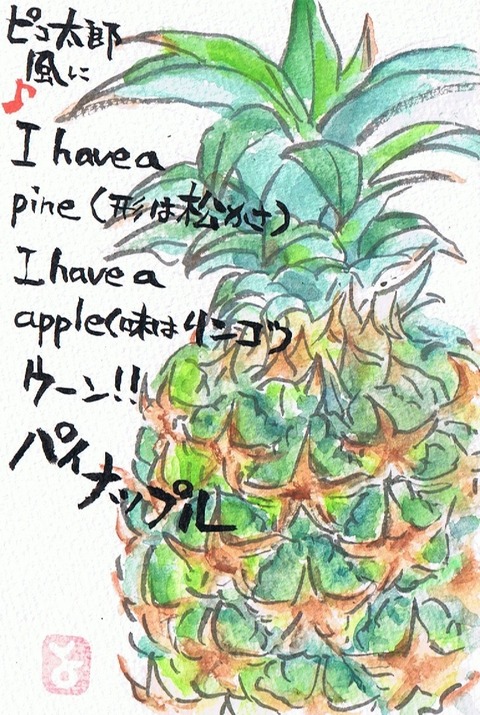 ピコ太郎
風に
♪
I have a
pine (形は松かさ)
I have a
apple(味はリンゴ)
ウーン!!
パイ
ナップル